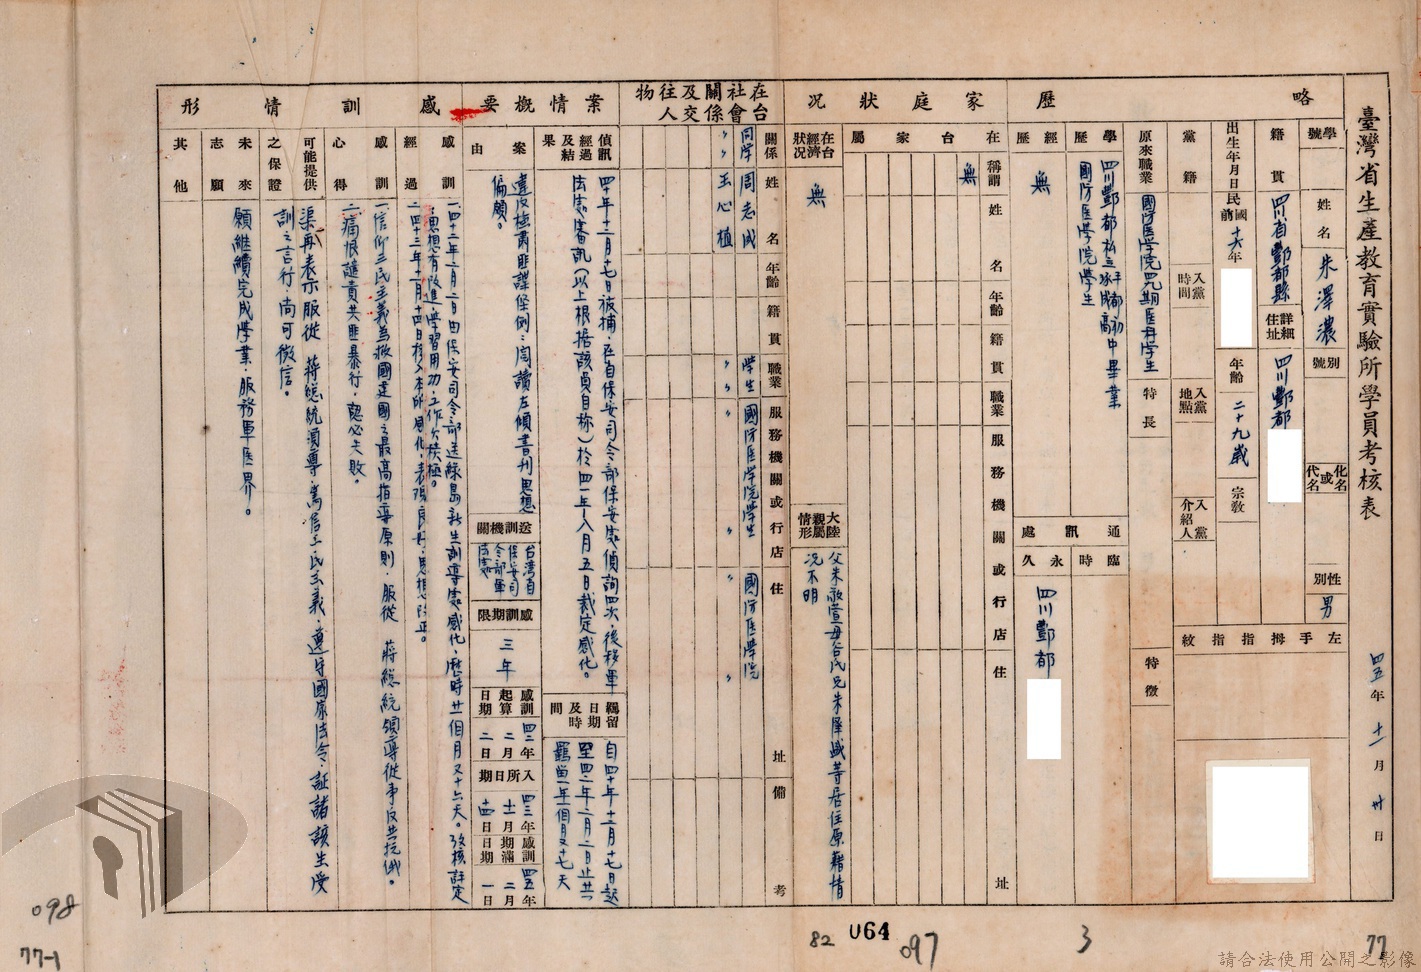 臺灣省生產教育實驗所學員考核表
四五年十一月廿日
略歷
學號
姓名 朱澤濃
別號
化名或代名
性別 男
籍貫 四川省酆都縣
詳細住址 四川酆都
左手拇指指紋
出生年月日 民國前 十六年
年齡 二十九歲
宗教
黨籍
入黨時間
入黨地點
入黨介紹人
原來職業 國防醫學院四九期醫科學生
特長
特徵
學歷 四川酆都私立平都初中畢業
國防醫學院學生
經歷 無
通訊處
臨時
永久 四川酆都
家庭狀況
在台家屬
稱謂 姓名 年齡 籍貫 職業 服務機關或行店 住址
無
在台經濟狀況 無
大陸親屬情形
父朱敬萱母谷氏兄朱澤盛等居住原籍情
況不明
在台社會關係及交往人物
關係 姓名 年齡 籍貫 職業 服務機關或行店 住址 備考
同學 周志成 學生 國防醫學院學生 國防醫學院
〃〃 王心植 〃〃 〃 〃 〃 〃
案情概要
偵訊經過及結果
四十年十二月十七日被捕,在自保安司令部保安處偵詢四次,後移軍
法處審訊(以上根據該員自称)於四一年八月五日裁定感化。
羈留日期及時間
自四十年十二月十七日起
至四二年二月二日止共
羈留一年一個月又十七天
案由
違反檢肅匪諜條例:閱讀左傾書刊思想
偏頗。
送訓機關
台灣省
保安司
令部軍
法處
感訓期限 三年
感訓起算日期 四二年二月二日
入所日期 四三年十一月十四日
感訓期滿日期 四五年二月一日
感訓情形
感訓經過
一、四十二年二月二日由保安司令部送綠島新生訓導處感化,歷時廿一個月又十六天。考核評定
思想有改進,學習用功,工作欠積極。
二、四十三年十一月十四日移入本所感化,表現良好,思想純正。
感訓心得
一、信仰三民主義為救國建國之最高指導原則,服從 蔣總統領導從事反共抗俄。
二、痛恨譴責共匪暴行,認必失敗。
可能提供之保證
渠再表示服從 蔣總統領導,篤信三民主義,遵守國家法令,証諸該生受
訓之言行,尚可徵信。
未來志願
願繼續完成學業,服務軍醫界。
其他
098
77-1
82
064
097
3
77
請合法使用公開之影像